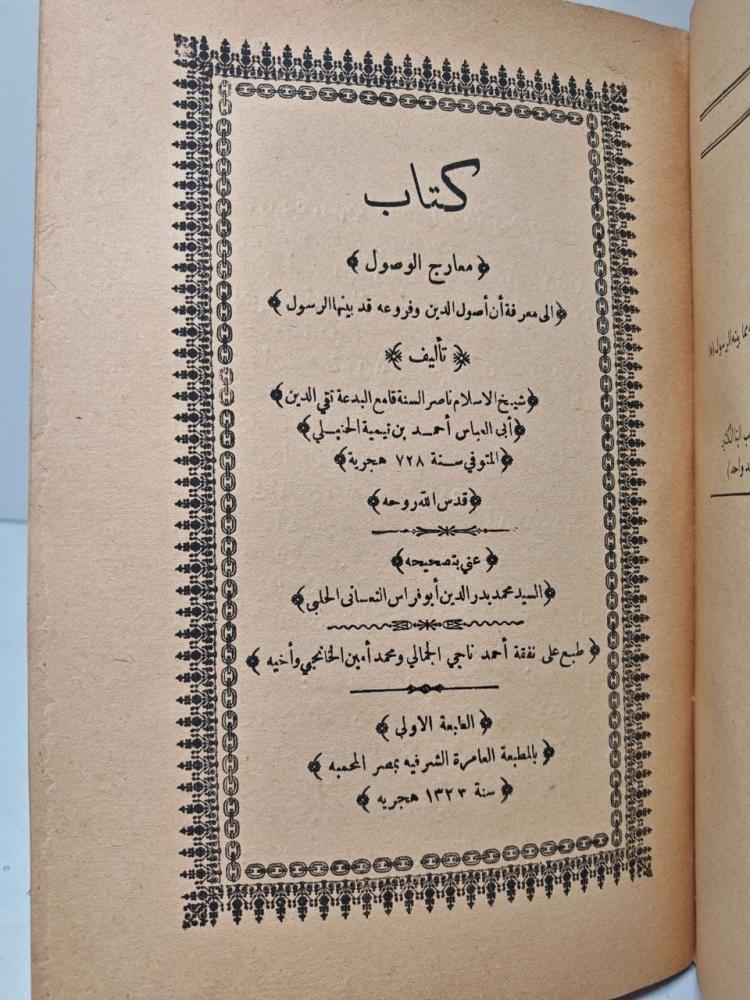 كتاب
﴿ معارج الوصول ﴾
﴿ الى معرفة أن أصول الدين وفروعه قد بينها الرسول ﴾
﴿ تأليف ﴾
﴿ شيخ الاسلام ناصر السنة قامع البدعة تقي الدين ﴾
﴿ أبى العباس أحمد بن تيمية الحنبلي ﴾
﴿ المتوفي سنة ٧٢٨ هجرية ﴾
﴿ قدس الله روحه ﴾
﴿ عني بتصحيحه ﴾
﴿ السيد محمد بدر الدين أبو فراس النعسانى الحلبي ﴾
﴿ طبع على نفقة أحمد ناجي الجمالي ومحمد أمين الخانجي وأخيه ﴾
﴿ الطبعة الاولى ﴾
﴿ بالمطبعة العامرة الشرفيه بمصر المحميه ﴾
﴿ سنة ١٣٢٣ هجريه ﴾